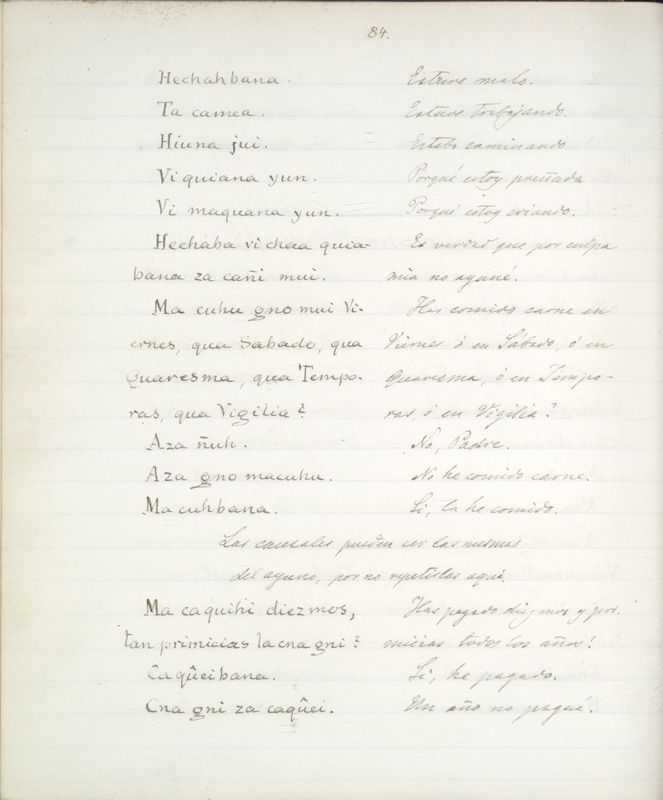 84.
Hechahbana. Estuve malo.
Ta camea. Estuve trabajando.
Hiuna jui. Estaba caminando
Viquiana yun. Porqué estoy preñada
Vi maquana yun. Porqué estoy criando.
Hechaba vi chaa quia- Es verdad que por culpa
bana za cañi mui. mia no ayuné.
Ma cuhu gno mui Vi- Has comido carne en
ernes, qua Sabado, qua Viernes ó en Sábado, ó en
Quaresma, qua Tempo- Quaresma, ó en Tempo-
ras, qua Vigilia? ras, ó en Vigilia?
Aza ñuh. No, Padre.
Aza gno macuhu. No he comido carne.
Ma cuhbana. Si, la he comido.
Las causales pueden ser las mismas
del ayuno, por no repetirlas aquí,
Ma caquihi diezmos, Has pagado diezmos y pri-
tan primicias lacna gni? micias todos los años?
Caqûeibana. Si, he pagado.
Cna gni za caqûei. Un año no pagué.